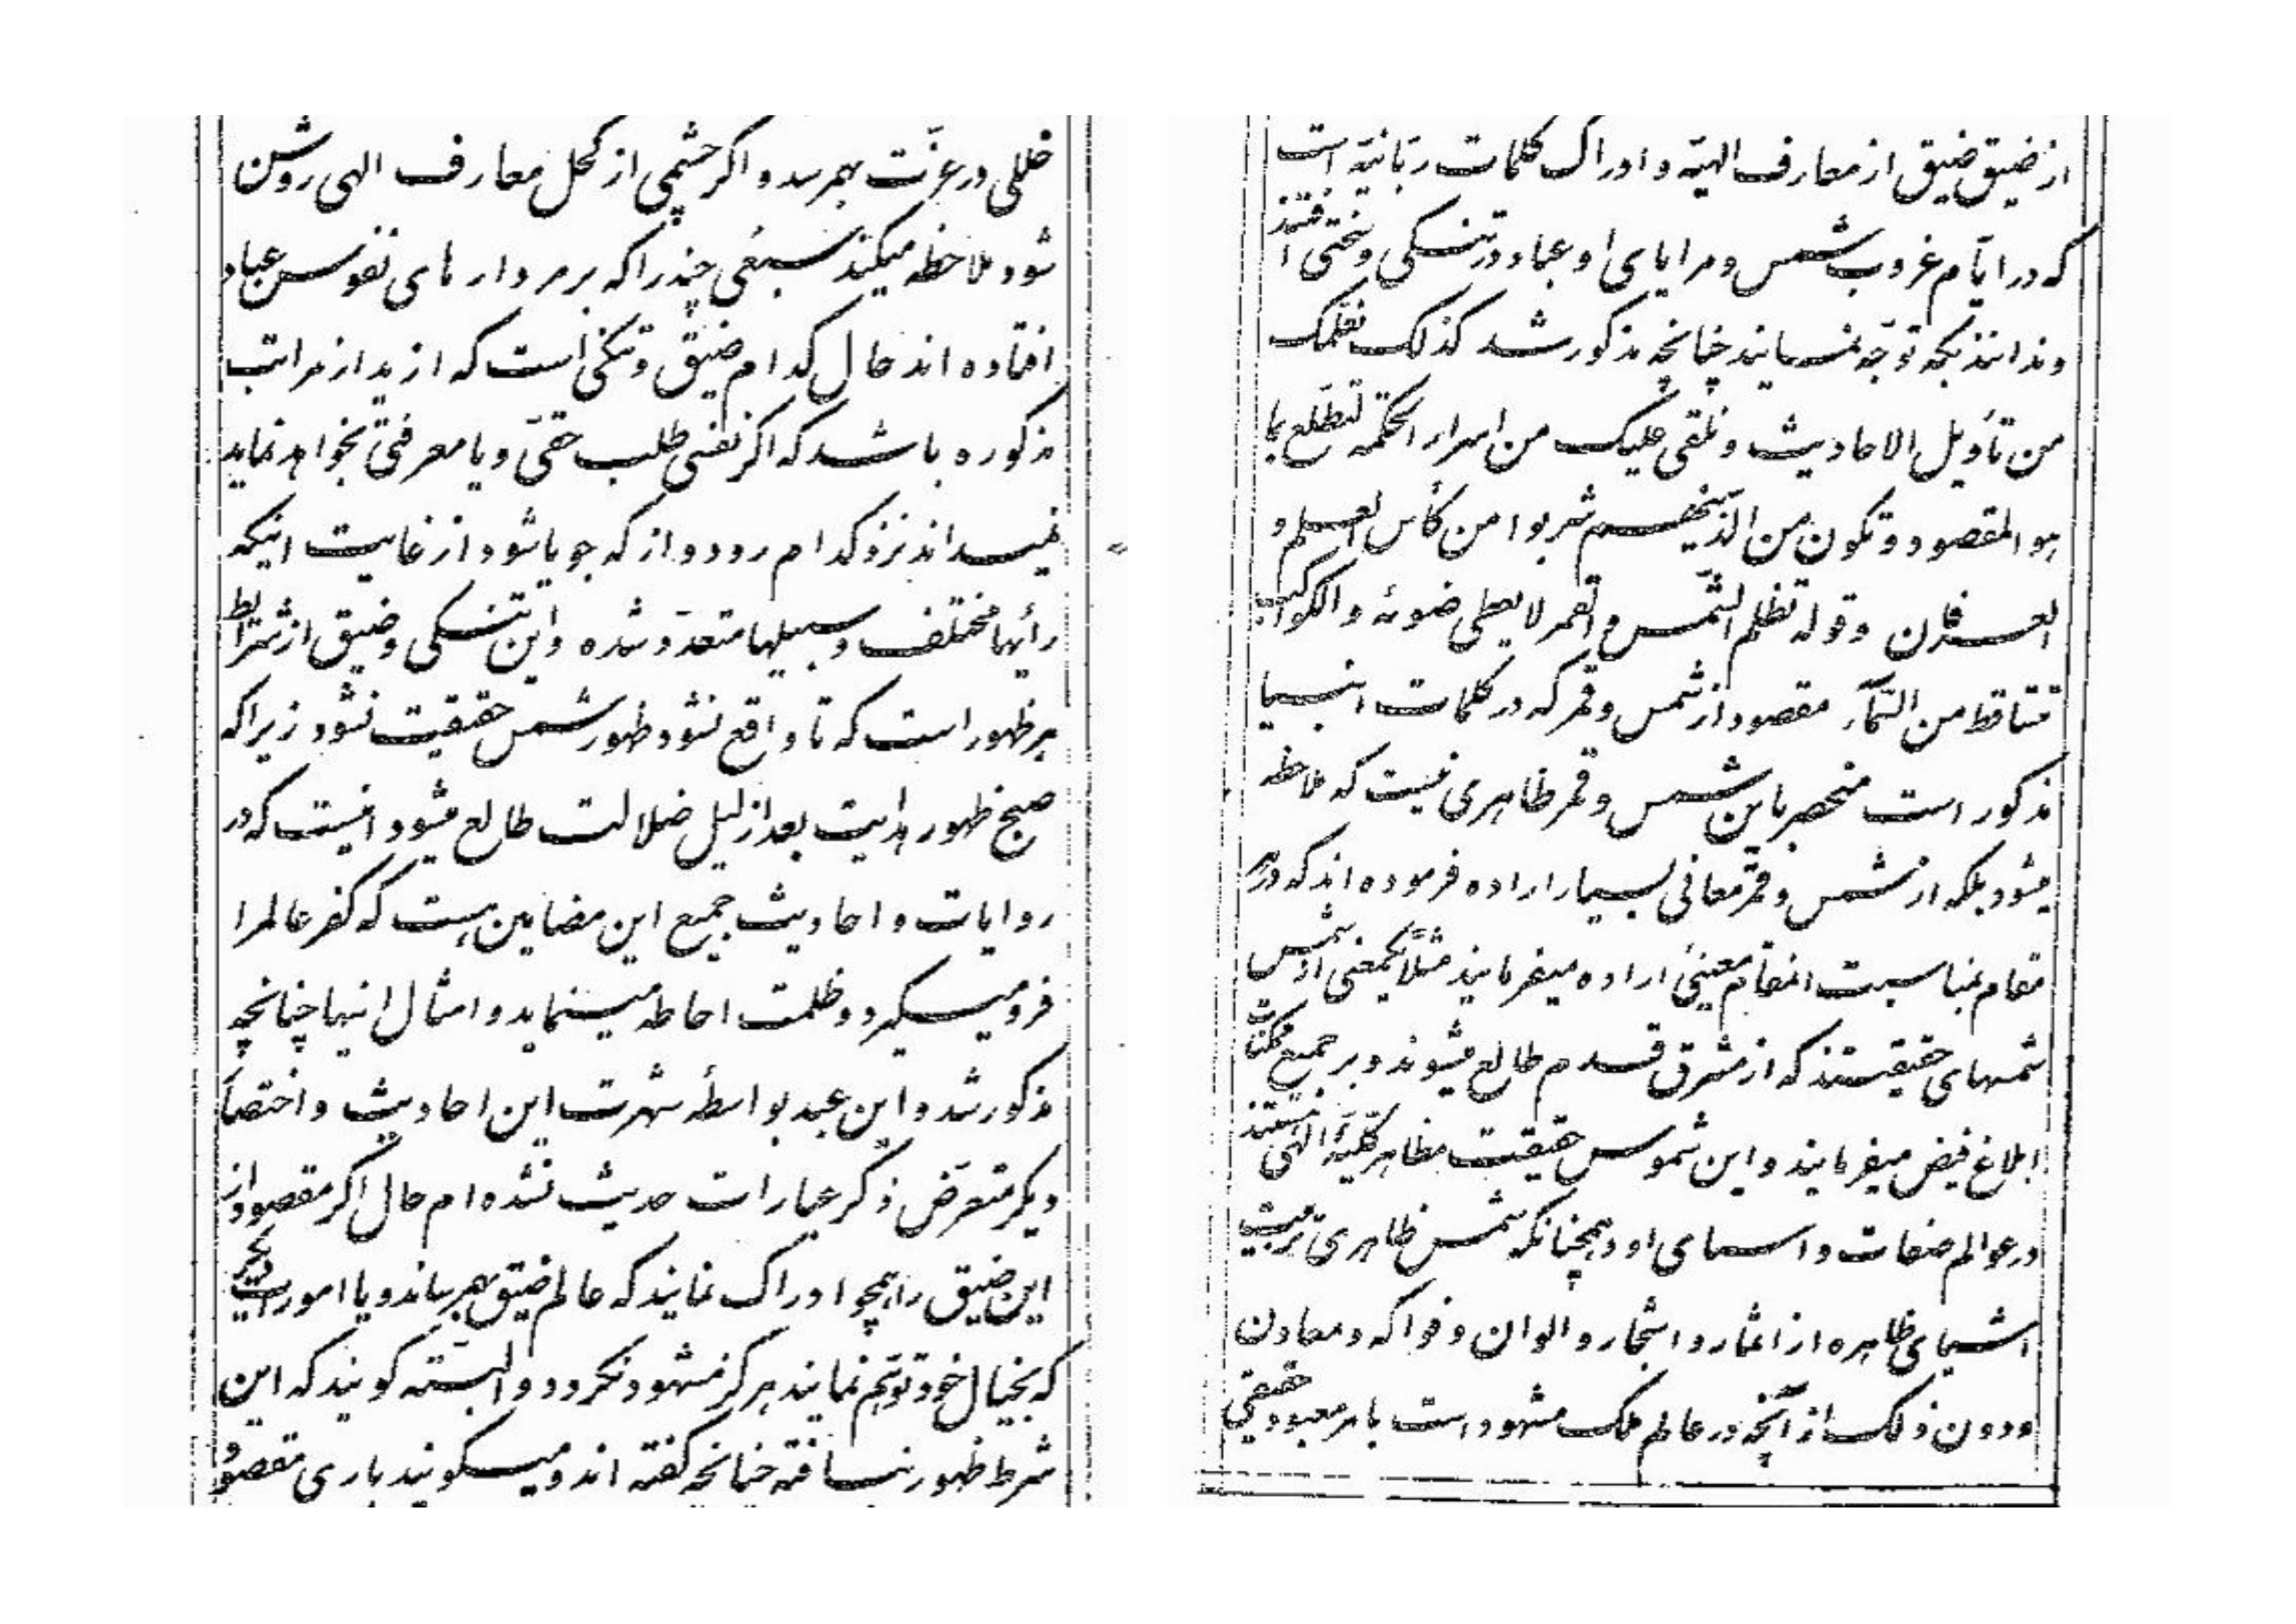 خللی در عزّت بهمرسد و اگر چشمی از کحل معارف الهی روشن
شود ملاحظه میکند سبعی چند را که بر مردار های نفوس عباد
افتاده اند حال کدام ضیق و تنگی است که ازید از مراتب
مذکوره باشد که اگر نفسی طلب حقّی و یا معرفتی بخواهد نماید
نمیداند نزد کدام رود و از که جویا شود از غایت اینکه
رأیها مختلف و سبیلها متعدّد شده و این تنگی و ضیق از شرایط
هر ظهور است که تا واقع نشود ظهور شمس حقیقت نشود زیرا که
صبح ظهور هدایت بعد از لیل ضلالت طالع میشود اینست که در
روایات و احادیث جمیع این مضامین هست که کفر عالمرا
فرو میگیرد و ظلمت احاطه مینماید و امثال اینها چنانچه
مذکور شد و این عبد بواسطهٔ شهرت این احادیث و اختصار
دیگر متعرّض ذکر عبارات حدیث نشده ام حال اگر مقصود از
این ضیق را همچو ادراک نمایند که عالم ضیق بهمرساند و یا امورات دیگر
که بخیال خود توهّم نمایند هرگز مشهود نگردد و البتّه گویند که این
شرط ظهور نیافته چنانچه گفته اند و میگویند باری مقصود
از ضیق ضیق از معارف الهیّه و ادراک کلمات ربّانیّه است
که در ایّام غروب شمس و مرایای او عباد در تنگی و سختی افتند
و ندانند بکه توجّه نمایند چنانچه مذکور شد کذلک نعلّمک
من تأویل الاحادیث و نلقی علیک من اسرار الحکمة لتطّلع بما
هو المقصود و تکون من الّذینهم شربوا من کأس العلم و
العرفان و قوله تظلم الشّمس و القمر لا یعطی ضوئه و الکواکب
تتساقط من السّمآء مقصود از شمس و قمر که در کلمات انبیا
مذکور است منحصر باین شمس و قمر ظاهری نیست که ملاحظه
میشود بلکه از شمس و قمر معانی بسیار اراده فرموده اند که در هر
مقام بمناسبت انمقام معنیئی اراده میفرمایند مثلاً یکمعنی از شمس
شمسهای حقیقتند که از مشرق قدم طالع میشوند و بر جمیع ممکنات
ابلاغ فیض میفرمایند و این شموس حقیقت مظاهر کلّیّهٔ الهی هستند
در عوالم صفات و اسمای او و همچنانکه شمس ظاهری تربیت
اشیای ظاهره از اثمار و اشجار و الوان و فواکه و معادن
و دون ذلک از آنچه در عالم ملک مشهود است بامر معبود حقیقی